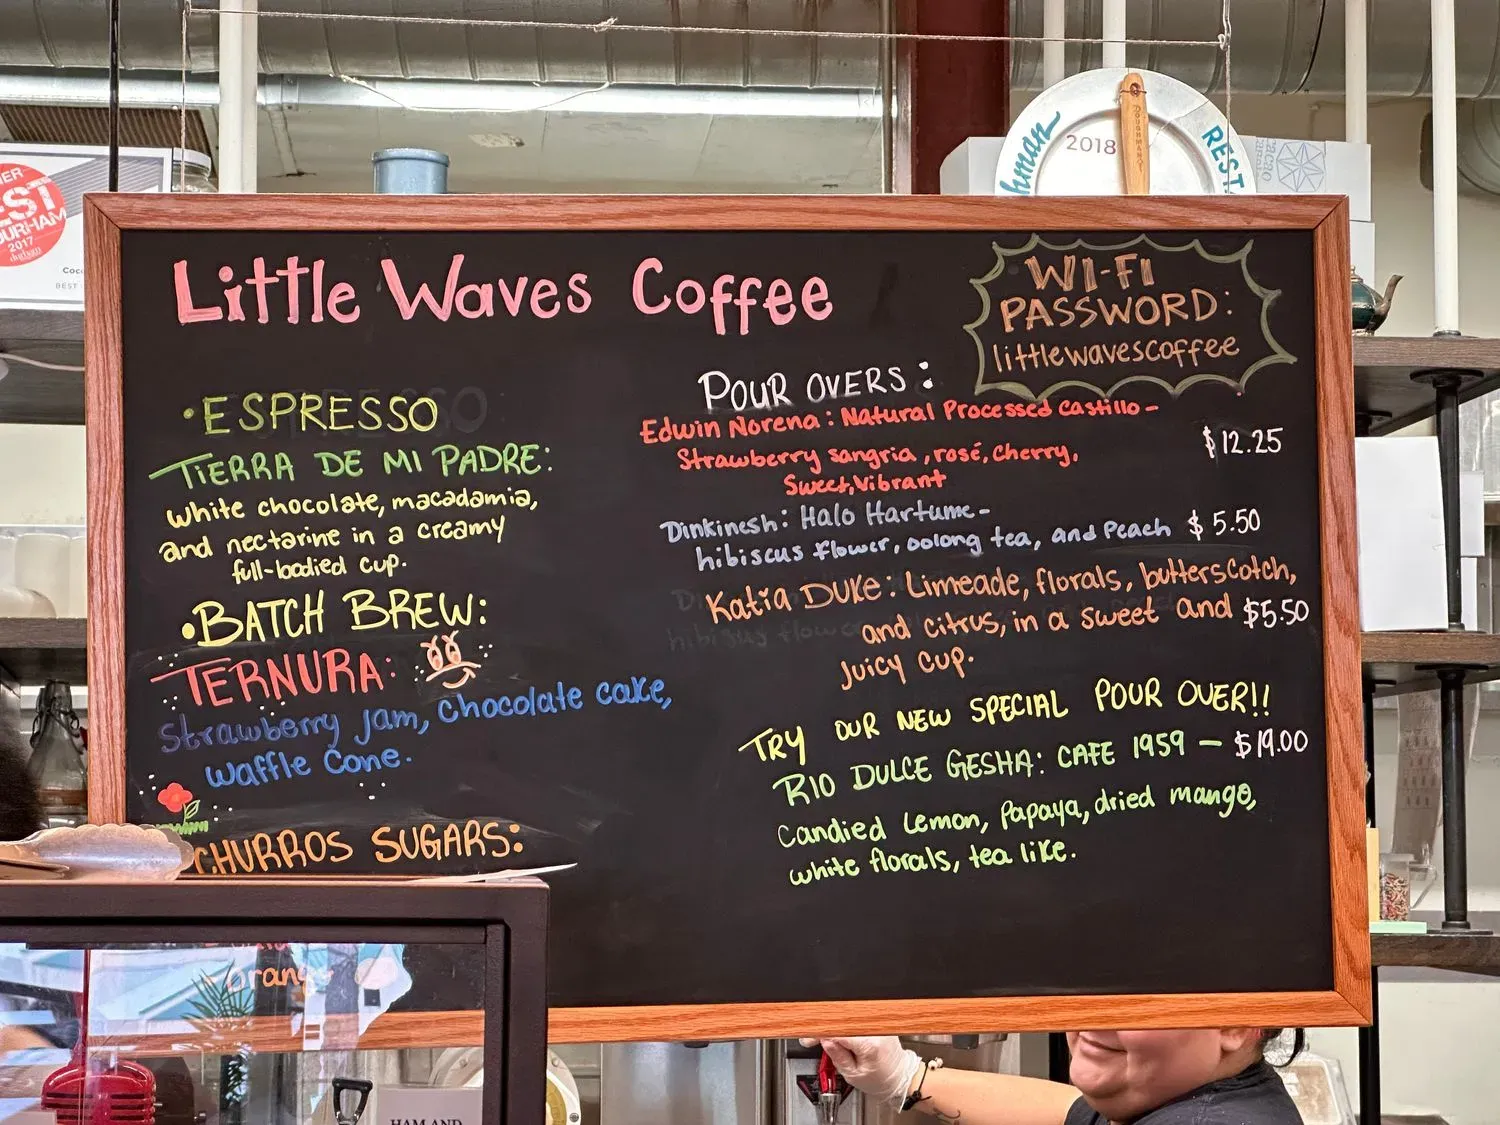 Little Waves Coffee
WI-FI
PASSWORD:
littlewavescoffee
•ESPRESSO
TIERRA DE MI PADRE:
white chocolate, macadamia,
and nectarine in a creamy
full-bodied cup.
•BATCH BREW:
TERNURA:
Strawberry jam, chocolate cake,
waffle cone.
CHURROS SUGARS:
orange
POUR OVERS:
Edwin Norena: Natural Processed Castillo -
Strawberry sangria, rosé, cherry, $12.25
Sweet, Vibrant
Dinkinesh: Halo Hartume -
hibiscus flower, oolong tea, and Peach $5.50
Katia Duke: Limeade, florals, butterscotch,
and citrus, in a sweet and $5.50
juicy cup.
TRY OUR NEW SPECIAL POUR OVER!!
RIO DULCE GESHA: CAFE 1959 - $19.00
Candied Lemon, Papaya, dried mango,
white florals, tea like.
2018
REST
hman
EST
DURHAM
2017
durham
Coco
BEST
cacao
HAM AND